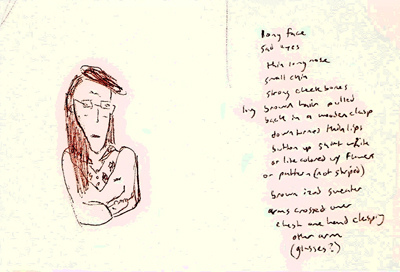 long face
sad eyes
thin long nose
small chin
strong cheek bones
long brown hair pulled
back in a wooden clasp
down turned thin lips
button up shirt white
or lite colored w/ flowers
or pattern (not striped)
brown sweater
arms crossed over
chest one hand clasping
other arm
(glasses?)